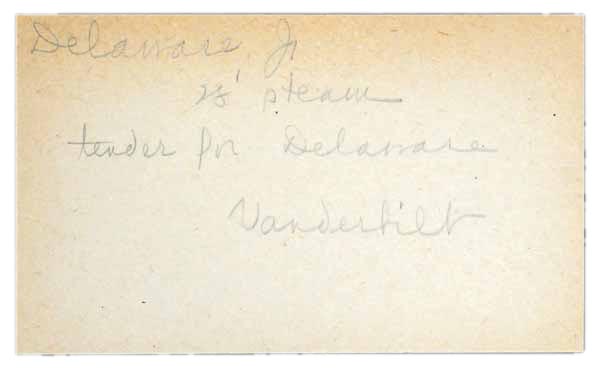 Delaware, Jr
25' steam
tender for Delaware
Vanderbilt